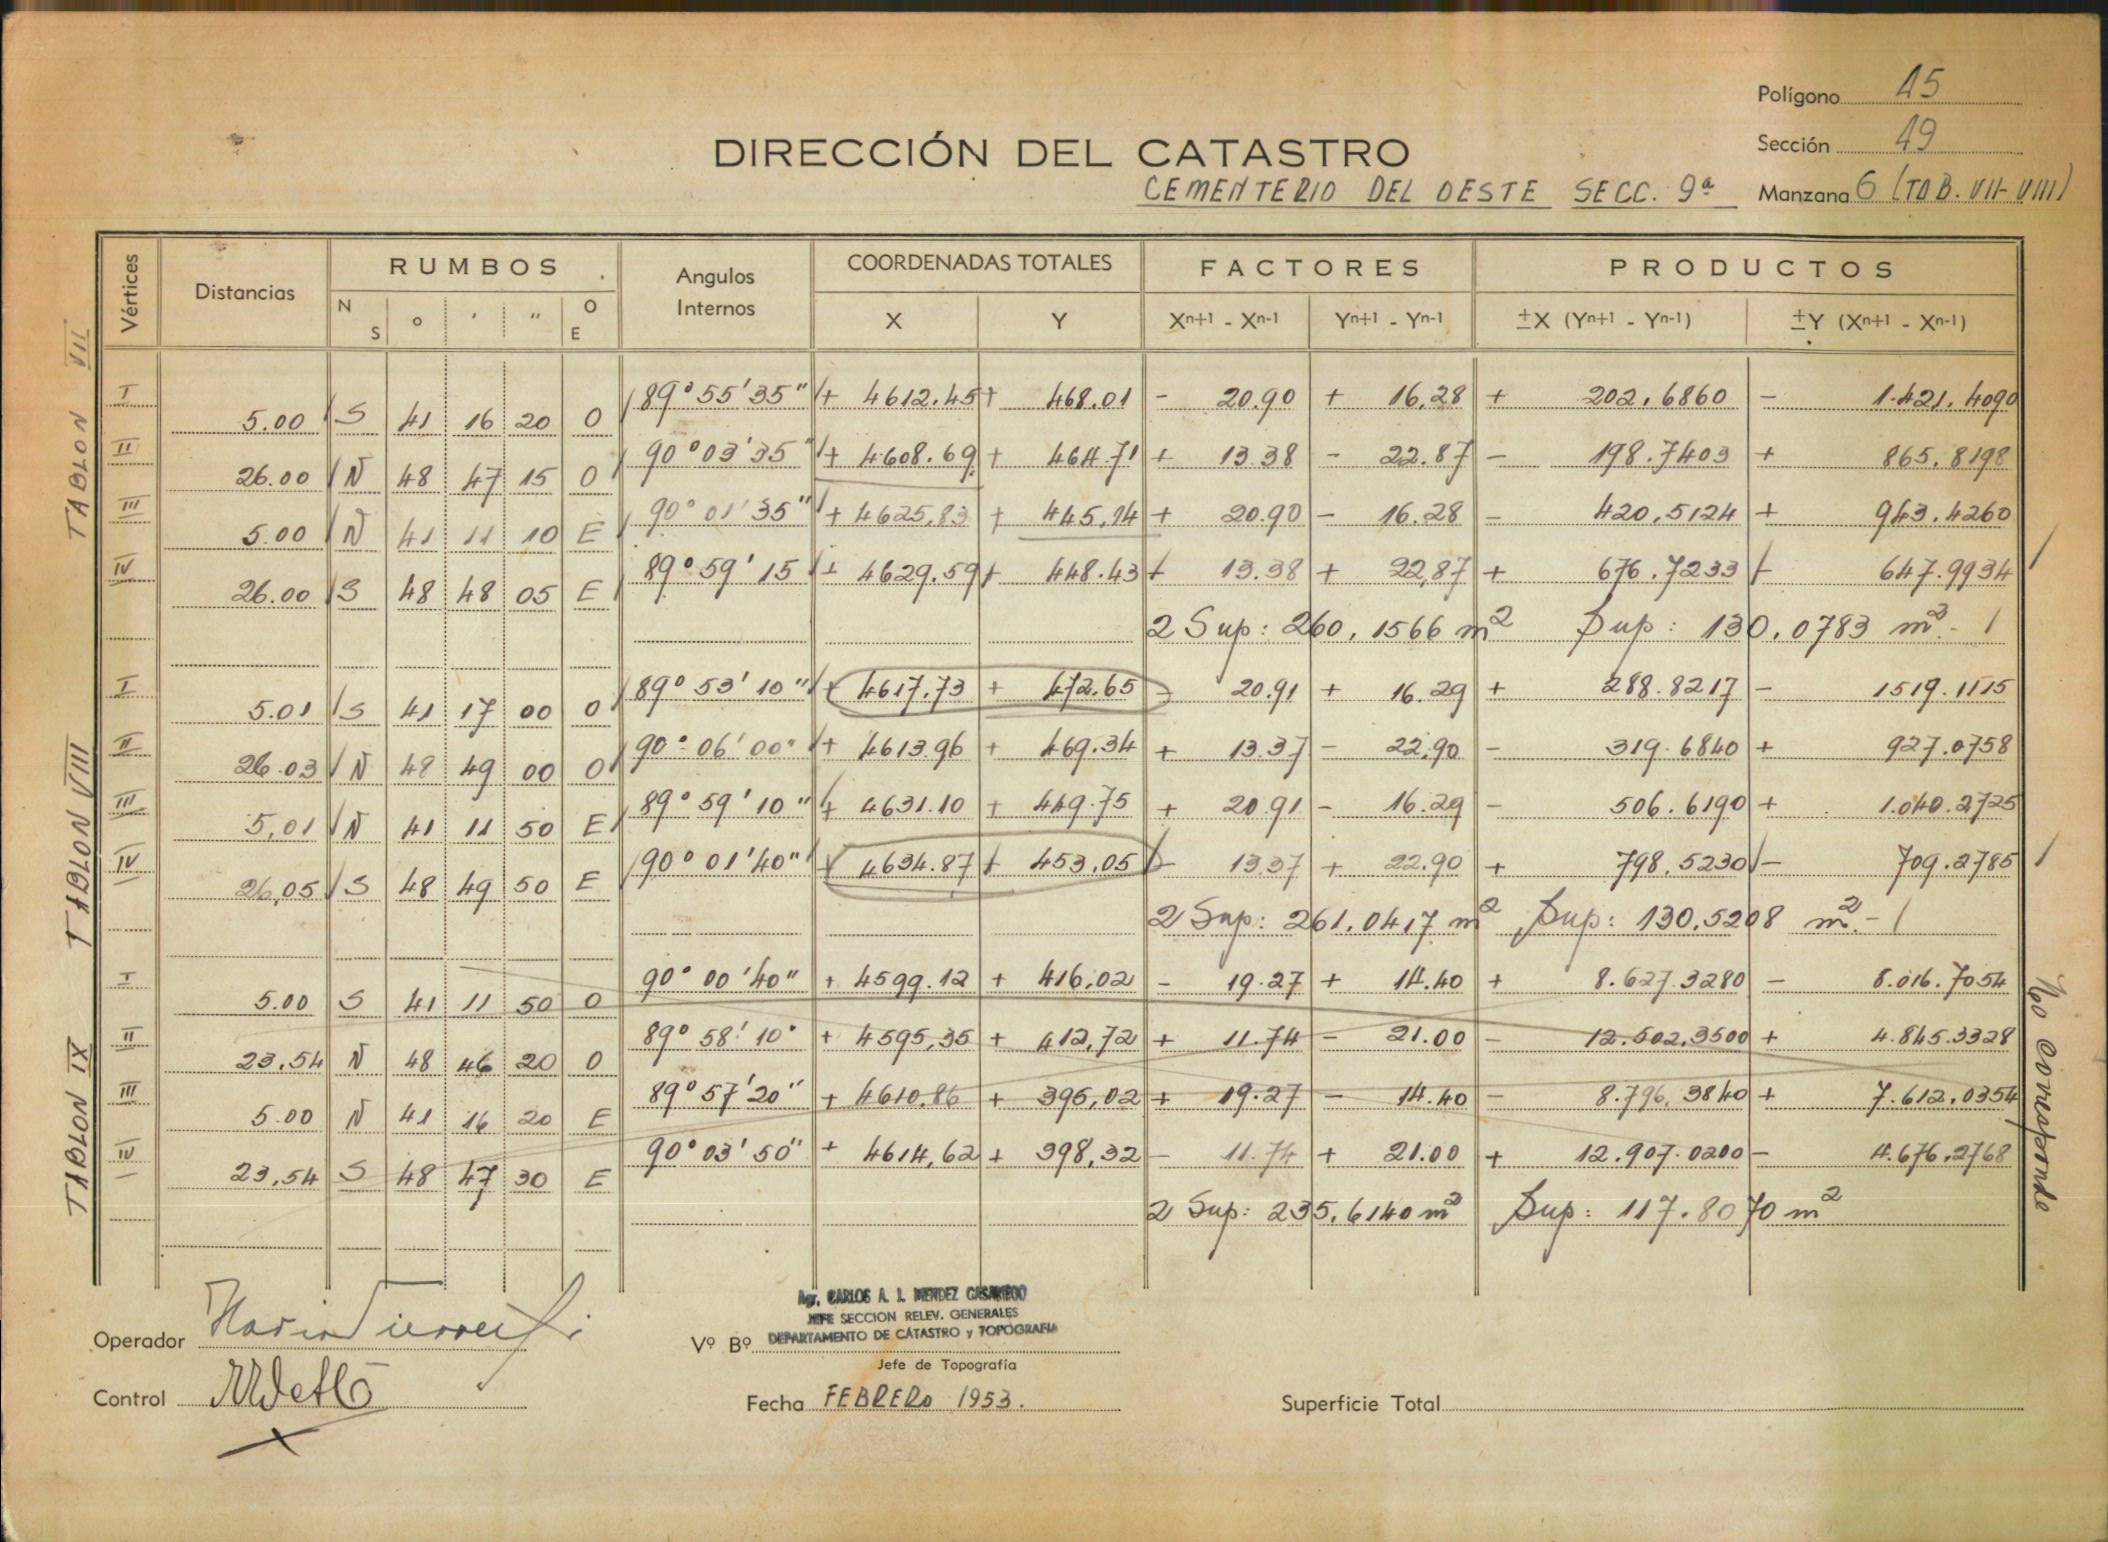 Polígono 45
DIRECCIÓN DEL CATASTRO
Sección 49
CEMENTERIO DEL OESTE SECC. 9ª
Manzana 6 (TAB. VII-VIII)
Vértices Distancias RUMBOS Angulos Internos COORDENADAS TOTALES FACTORES PRODUCTOS
N S ° ' " O E X Y Xn+1 - Xn-1 Yn+1 - Yn-1 ±X (Yn+1 - Yn-1) ±Y (Xn+1 - Xn-1)
TABLON VII
I 89° 55' 35" + 4612.45 + 468.01 - 20.90 + 16,28 + 202,6860 - 1.421,4090
5.00 S 41 16 20 O
II 90° 03' 35" + 4608.69 + 464.71 + 13.38 - 22.87 - 198.7403 + 865,8198
26.00 N 48 47 15 O
III 90° 01' 35" + 4625,83 + 445,14 + 20.90 - 16.28 - 420,5124 + 943.4260
5.00 N 41 11 10 E
IV 89° 59' 15 + 4629.59 + 448.43 - 13.38 + 22,87 + 676.7233 - 647.9934
26.00 S 48 48 05 E
2 Sup: 260,1566 m2 Sup: 130,0783 m2.-
TABLON VIII
I 89° 53' 10" + 4617.73 + 472.65 - 20.91 + 16.29 + 288.8217 - 1519.1115
5.01 S 41 17 00 O
II 90° 06' 00" + 4613.96 + 469.34 + 13.37 - 22.90 - 319.6840 + 927.0758
26.03 N 48 49 00 O
III 89° 59' 10" + 4631.10 + 449.75 + 20.91 - 16.29 - 506.6190 + 1.040.2725
5,01 N 41 11 50 E
IV 90° 01' 40" + 4634.87 + 453,05 - 13.37 + 22.90 + 798,5230 - 709.2785
26,05 S 48 49 50 E
2 Sup: 261,0417 m2 Sup: 130,5208 m2.-
TABLON IX
I 90° 00' 40" + 4599.12 + 416,02 - 19.27 + 14.40 + 8.627.3280 - 8.016.7054
5.00 S 41 11 50 O
II 89° 58' 10" + 4595,35 + 412,72 + 11.74 - 21.00 - 12.502,3500 + 4.845.3328
23,54 N 48 46 20 O
III 89° 57' 20" + 4610,86 + 395,02 + 19.27 - 14.40 - 8.796,3840 + 7.612,0354
5.00 N 41 16 20 E
IV 90° 03' 50" + 4614,62 + 398,32 - 11.74 + 21.00 + 12.907.0200 - 4.676,2768
23,54 S 48 47 30 E
2 Sup: 235,6140 m2 Sup: 117.8070 m2
No corresponde
Agr. CARLOS A. J. MENDEZ CASARIEGO
JEFE SECCION RELEV. GENERALES
DEPARTAMENTO DE CATASTRO y TOPOGRAFIA
Operador
Vº Bº
Jefe de Topografía
Control
Fecha FEBRERO 1953.
Superficie Total